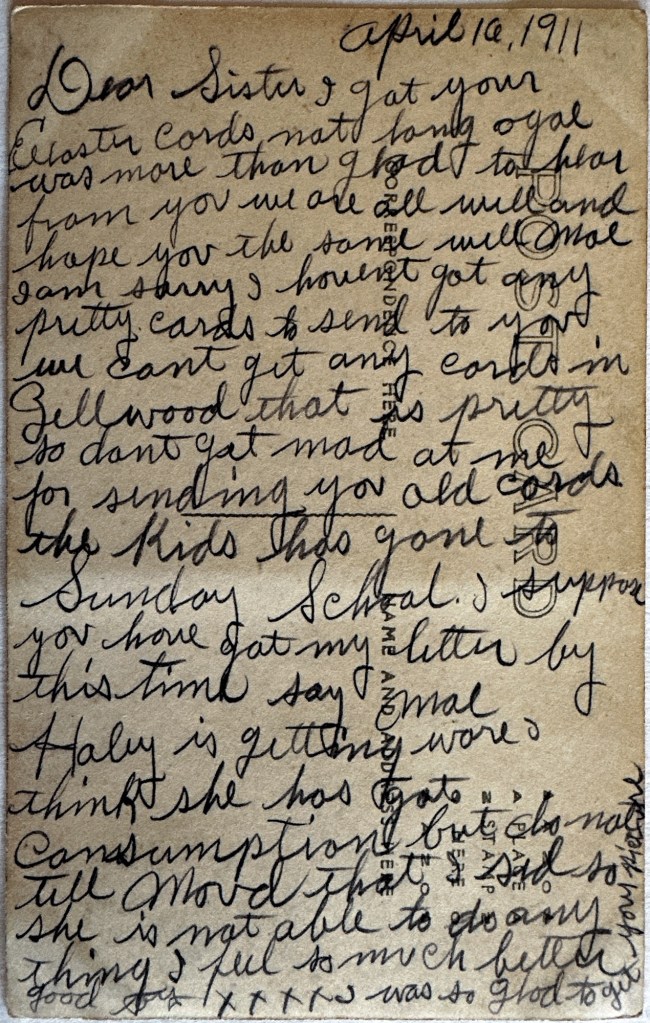 April 16, 1911
Dear Sister I got your
Eeaster cards not long ogae
was more than glad to hear
from you we are all well and
hope you the same well Mae
I am sarry I havent got any
pretty cards to send to you
we cant get any cards in
Zellwood that is pretty
so dant get mad at me
for sending you old cards
the Kids has gone to
Sunday School. I suppose
you have got my letter by
this time say Mae
Haley is getting worse I
think she has got
Consumption but do not
tell Maud that I sed so
she is not able to do any
thing I feel so much better
good x x x x I was so glad to get your picture
POST CARD
CORRESPONDENCE HERE
NAME AND ADDRESS HERE